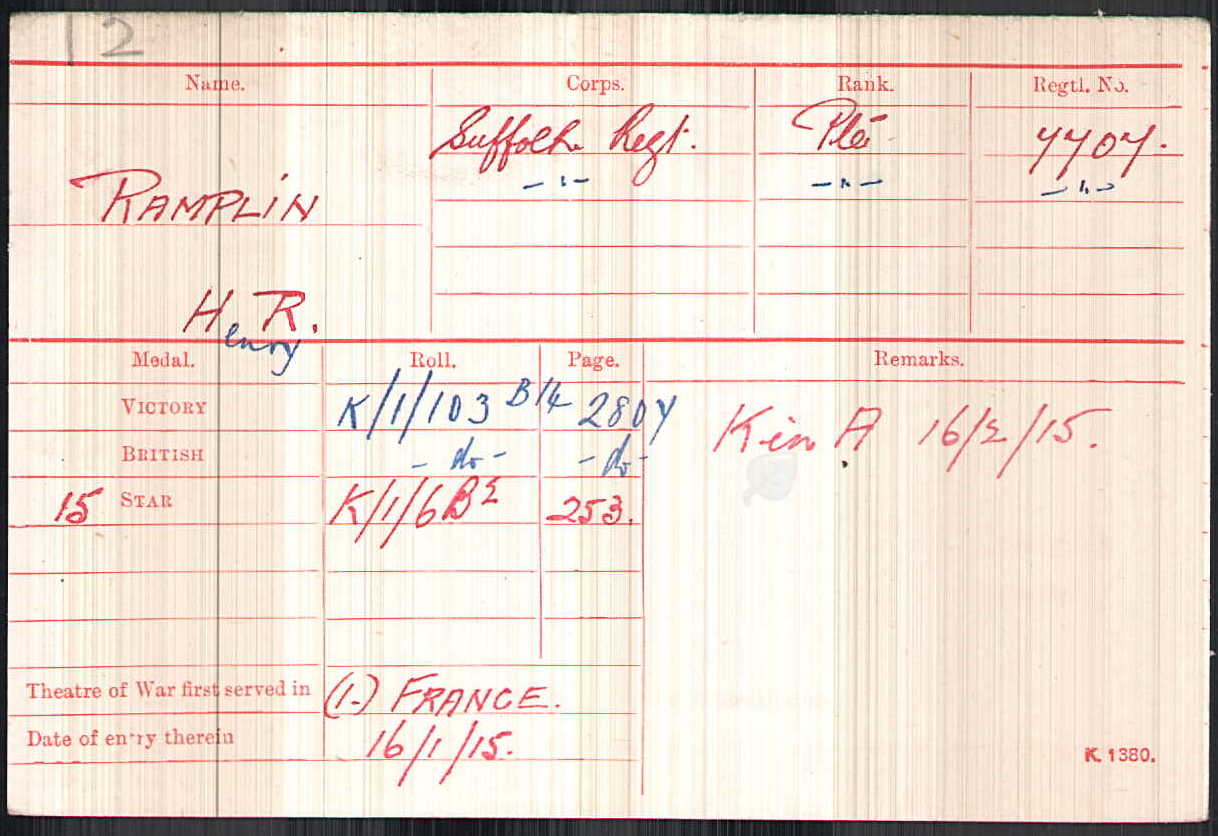 12
Name. Corps. Rank. Regtl. No.
RAMPLIN Suffolk Regt. Pte 7707.
-"- -"- -"-
H R.
enry
Medal. Roll. Page. Remarks.
VICTORY K/1/103 B14 2807 K in A 16/2/15.
BRITISH -do- -do-
15 STAR K/1/6B2 253.
Theatre of War first served in (1.) FRANCE.
Date of entry therein 16/1/15.
K. 1380.